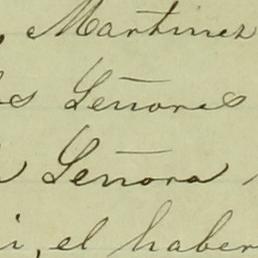 , Martinez
os Señores
a Señora
i, el haber